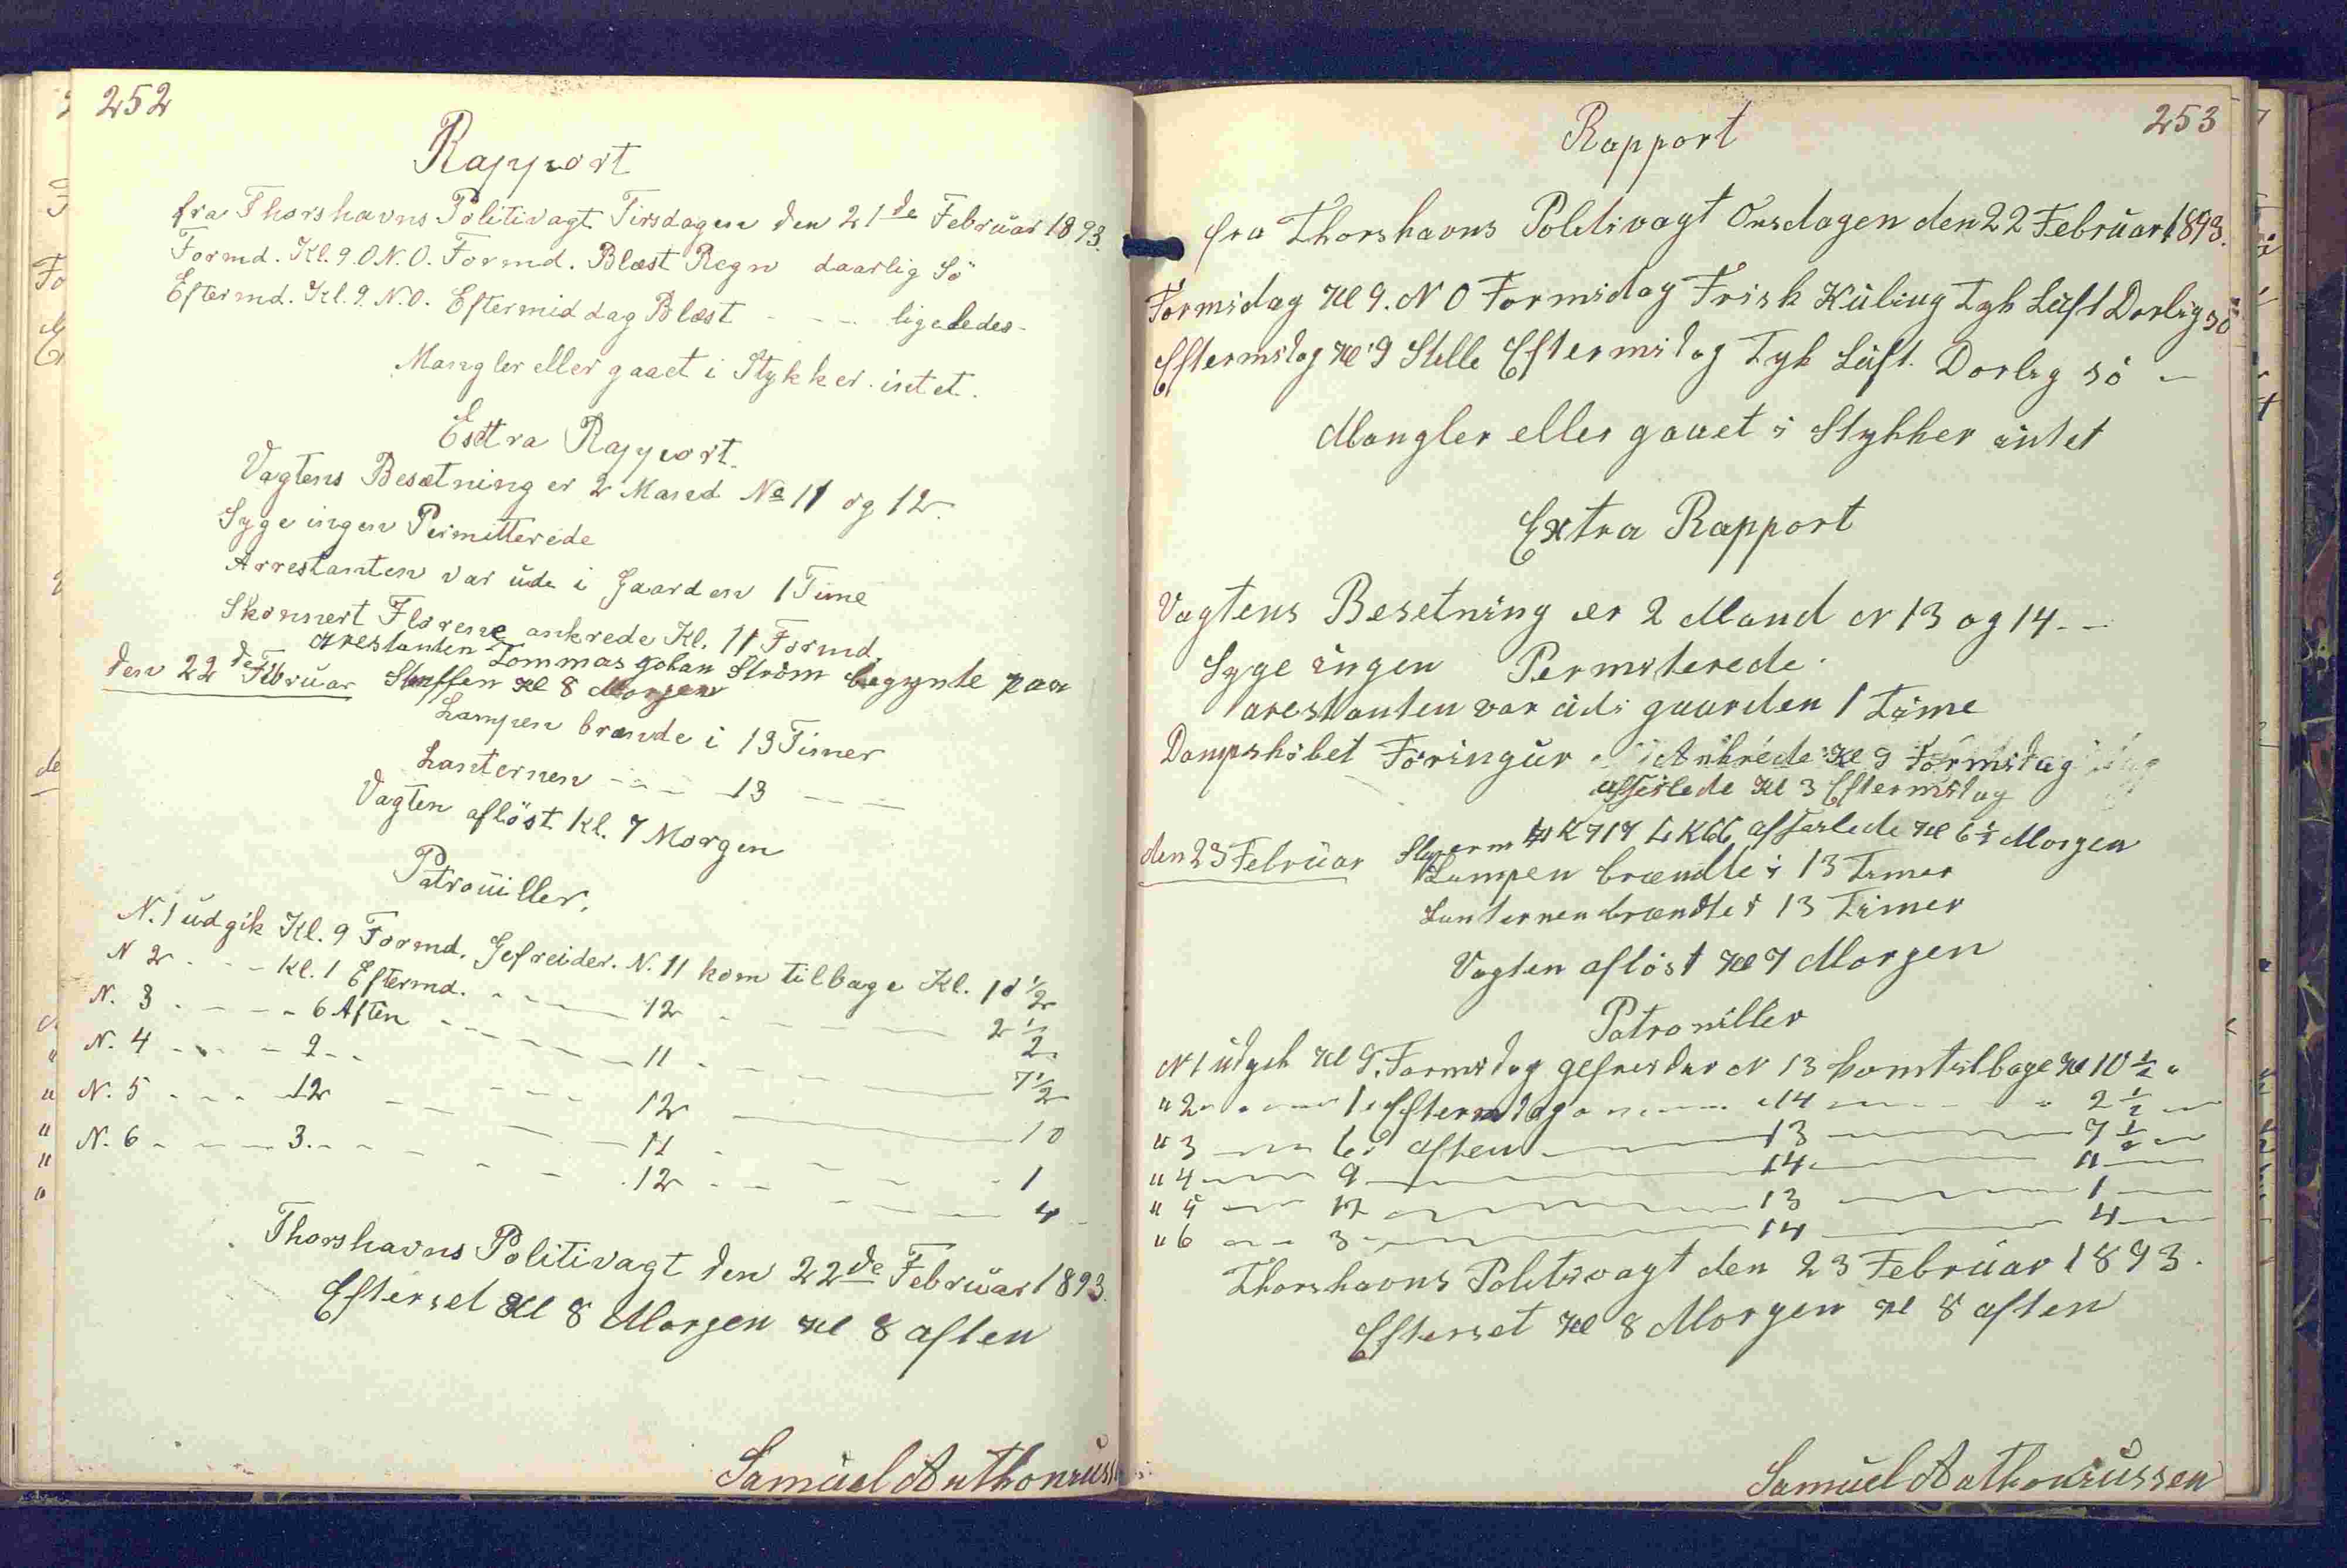 252
Rapport
fra Thorshavns Politivagt Tirsdagen den 21de Februar 1893.
Formd. Kl. 9. O.N.O. Formd. Blæst Regn daarlig Sö
Eftermd. Kl. 9. N.O. Eftermiddag Blæst - - - ligeledes -
Mangler eller gaaet i Stykker intet.
Extra Rapport.
Vagtens Besætning er 2 Mand No 11 og 12.
Syge ingen Permitterede
Arrestanten var ude i Gaarden 1 Time
Skonnert Florene ankrede Kl. 11 Formd.
arestanten Tommas Johan Ström begynte paa
den 22de Februar Straffen Kl 8 Morgen
Lampen brænde i 13 Timer
Lanternen - - - 13 - - -
Vagten aflöst Kl. 7 Morgen
Patrouiller.
N. 1 udgik Kl. 9 Formd. Gefreider. N. 11 kom tilbage Kl. 10 1/2
N 2 - - - Kl. 1 Eftermd. - - - 12 - - - 2 1/2
N. 3 - - - 6 Aften - - - 11 - - - 7 1/2
N. 4 - - - 9 - - - 12 - - - 10
N. 5 - - - 12 - - - 11 - - - 1
N. 6 - - - 3. - - - 12 - - - 4 -
Thorshavns Politivagt den 22de Februar 1893.
Efterset Kl 8 Morgen Kl 8 aften
Samuel Anthoniuss
253
Rapport
fra Thorshavns Politivagt Onsdagen den 22 Februar 1893.
Formidag Kl 9. N O Formidag Frisk Küling Tyk Luft Dorlig sö
Eftermidag Kl 9 Stille Eftermidag Tyk Luft. Dorlig sö -
Mangler eller gaaet i Stykker intet
Extra Rapport
Vagtens Besetning er 2 Mand N 13 og 14 - -
Syge ingen Permiterede.
arestanten var udi gaarden 1 Time
Dampskibet Föringur Ankrede Kl 9 Formidag
afseilede Kl 3 Eftermidag
den 23 Februar afseilede Kl 6 1/2 Morgen
Lampen brændte i 13 Timer
Lanternen brændte i 13 Timer
Vagten aflöst Kl 7 Morgen
Patrouiller
N 1 udgek Kl 9. Formidag gefreider N 13 kom tilbage Kl 10 1/2 "
" 2 - - - 1 Eftermidag - - - 14 - - - 2 1/2 -
" 3 - - - 6 aften - - - 13 - - - 7 1/2 -
" 4 - - - 9 - - - 14 - - - 11 -
" 5 - - - 12 - - - 13 - - - 1 -
" 6 - - - 3 - - - 14 - - - 4 -
Thorshavns Politivagt den 23 Februar 1893.
Efterset Kl 8 Morgen Kl 8 aften
Samuel Anthoniussen